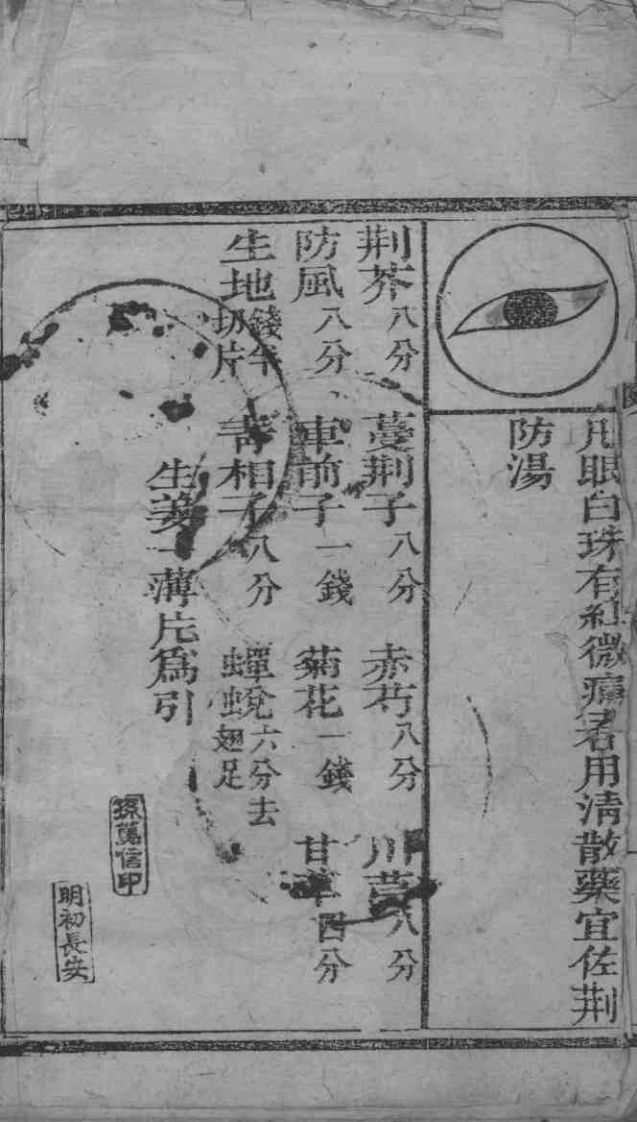 凡眼白珠有紅微痛者用清散藥宜佐荆
防湯
荆芥八分 蔓荆子八分 赤芍八分 川芎八分
防風八分 車前子一錢 菊花一錢 甘草四分
生地錢半切片 青相子八分 蟬蛻六分去虫翅足
生姜一薄片爲引
孫篤信印
明初長安